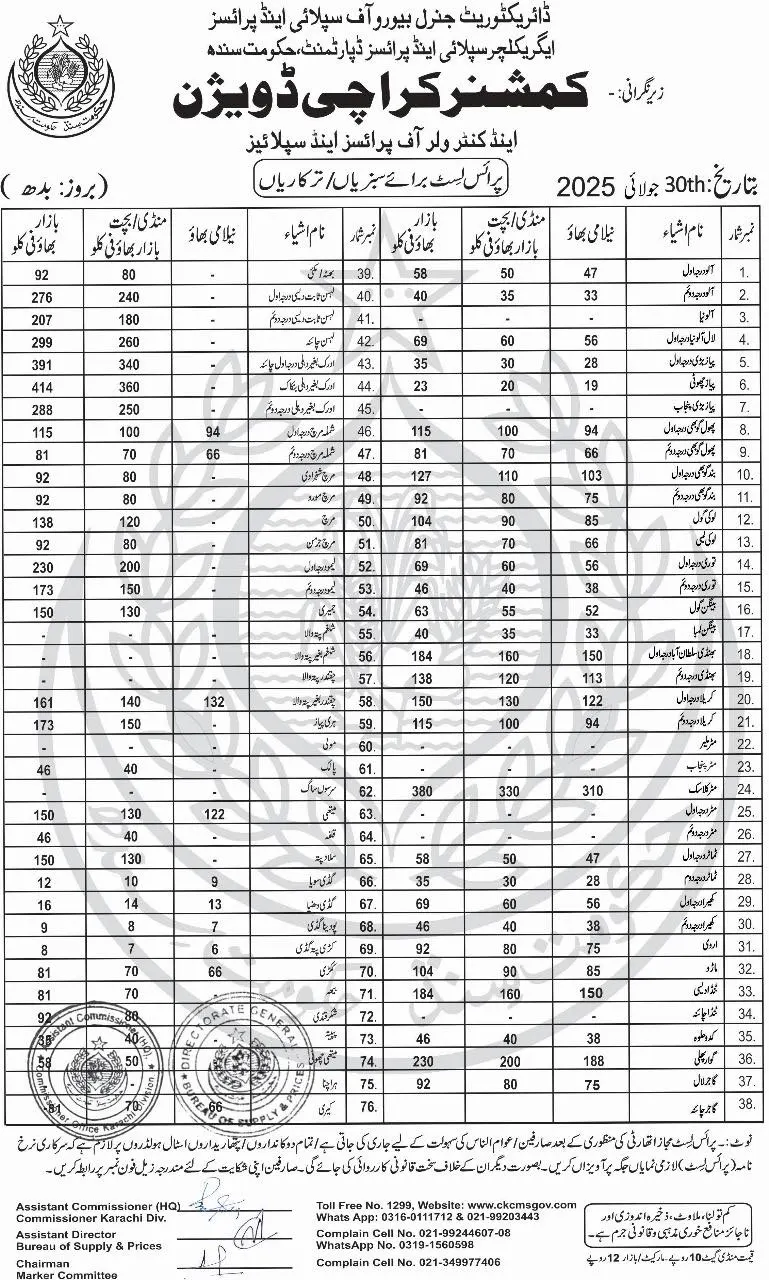 ڈائریکٹوریٹ جنرل بیورو آف سپلائی اینڈ پرائسز
ایگریکلچر سپلائی اینڈ پرائسز ڈپارٹمنٹ، حکومت سندھ
زیر نگرانی: -
کمشنر کراچی ڈویژن
اینڈ کنٹرولر آف پرائسز اینڈ سپلائیز
بتاریخ: 30th جولائی 2025
پرائس لسٹ برائے سبزیاں/ترکاریاں
(بروز: بدھ)
نمبر شمار نام اشیاء نیلامی بھاؤ منڈی/بچت بازار بھاؤ فی کلو بازار بھاؤ فی کلو
1. آلو درجہ اول 47 50 58
2. آلو درجہ دوئم 33 35 40
3. آلو نیا - - -
4. لال آلو نیا درجہ اول 56 60 69
5. پیاز بڑی درجہ اول 28 30 35
6. پیاز چھوٹی 19 20 23
7. پیاز بڑی پنجاب - - -
8. پھول گوبھی درجہ اول 94 100 115
9. پھول گوبھی درجہ دوئم 66 70 81
10. بند گوبھی درجہ اول 103 110 127
11. بند گوبھی درجہ دوئم 75 80 92
12. لوکی گول 85 90 104
13. لوکی لمبی 66 70 81
14. توری درجہ اول 56 60 69
15. توری درجہ دوئم 38 40 46
16. بینگن گول 52 55 63
17. بینگن لمبا 33 35 40
18. بھنڈی سلطان آباد درجہ اول 150 160 184
19. بھنڈی درجہ دوئم 113 120 138
20. کریلا درجہ اول 122 130 150
21. کریلا درجہ دوئم 94 100 115
22. مٹر ملیر - - -
23. مٹر پنجاب - - -
24. مٹر کلاسک 310 330 380
25. مٹر درجہ اول - - -
26. مٹر درجہ دوئم - - -
27. ٹماٹر درجہ اول 47 50 58
28. ٹماٹر درجہ دوم 28 30 35
29. کھیرا درجہ اول 56 60 69
30. کھیرا درجہ دوئم 38 40 46
31. اروی 75 80 92
32. ماڑو 85 90 104
33. ٹنڈا دیسی 150 160 184
34. ٹنڈا چائنہ - - -
35. کدو حلوہ 38 40 46
36. گوار پھلی 188 200 230
37. گاجر لال 75 80 92
38. گاجر چائنہ
نمبر شمار نام اشیاء نیلامی بھاؤ منڈی/بچت بازار بھاؤ فی کلو بازار بھاؤ فی کلو
39. بھٹہ/مکئی - 80 92
40. لہسن ثابت دیسی درجہ اول - 240 276
41. لہسن ثابت دیسی درجہ دوئم - 180 207
42. لہسن چائنہ - 260 299
43. ادرک بغیر دھلی درجہ اول چائنہ - 340 391
44. ادرک بغیر دھلی بنکاک - 360 414
45. ادرک بغیر دھلی درجہ دوئم - 250 288
46. شملہ مرچ درجہ اول 94 100 115
47. شملہ مرچ درجہ دوئم 66 70 81
48. مرچ شہزادی - 80 92
49. مرچ مورو - 80 92
50. مرچ - 120 138
51. مرچ جرمن - 80 92
52. لیمو درجہ اول - 200 230
53. لیمو درجہ دوئم - 150 173
54. جمیری - 130 150
55. شلغم پتہ والا - - -
56. شلغم بغیر پتہ والا - - -
57. چقندر پتہ والا - - -
58. چقندر بغیر پتہ والا 132 140 161
59. ہری پیاز - 150 173
60. مولی - - -
61. پالک - 40 46
62. سرسوں ساگ - - -
63. میتھی 122 130 150
64. قلفہ - 40 46
65. سلاد پتہ - 130 150
66. گڈی سویا 9 10 12
67. گڈی دھنیا 13 14 16
68. پودینا گڈی 7 8 9
69. کڑی پتہ گڈی 6 7 8
70. ککڑی 66 70 81
71. - 70 81
72. شکر قندی 80 92
73. پپیتہ 40 35
74. میتھی چھوٹی 50 58
75. ہرا چنا
76. کیری 66 70 81
Assistant Commissioner (HQ)
Commissioner Office Karachi Division
DIRECTORATE GENERAL
BUREAU OF SUPPLY & PRICES
نوٹ:۔ پرائس لسٹ مجاز اتھارٹی کی منظوری کے بعد صارفین/عوام الناس کی سہولت کے لیے جاری کی جاتی ہے/تمام دوکانداروں/پتھاریداروں اسٹال ہولڈروں پر لازم ہے کہ سرکاری نرخ
نامہ (پرائس لسٹ) لازمی نمایاں جگہ پر آویزاں کریں۔ بصورت دیگر ان کے خلاف سخت قانونی کارروائی کی جائے گی۔ صارفین اپنی شکایت کے لئے مندرجہ ذیل فون نمبر پر رابطہ کریں۔
Assistant Commissioner (HQ)
Commissioner Karachi Div.
Assistant Director
Bureau of Supply & Prices
Chairman
Marker Committee
Toll Free No. 1299, Website: www.ckcmsgov.com
Whats App: 0316-0111712 & 021-99203443
Complain Cell No. 021-99244607-08
WhatsApp No. 0319-1560598
Complain Cell No. 021-349977406
کم تولنا، ملاوٹ، ذخیرہ اندوزی اور
ناجائز منافع خوری مذہبی و قانونی جرم ہے۔
قیمت منڈی گیٹ 10 روپے - مارکیٹ/بازار 12 روپے